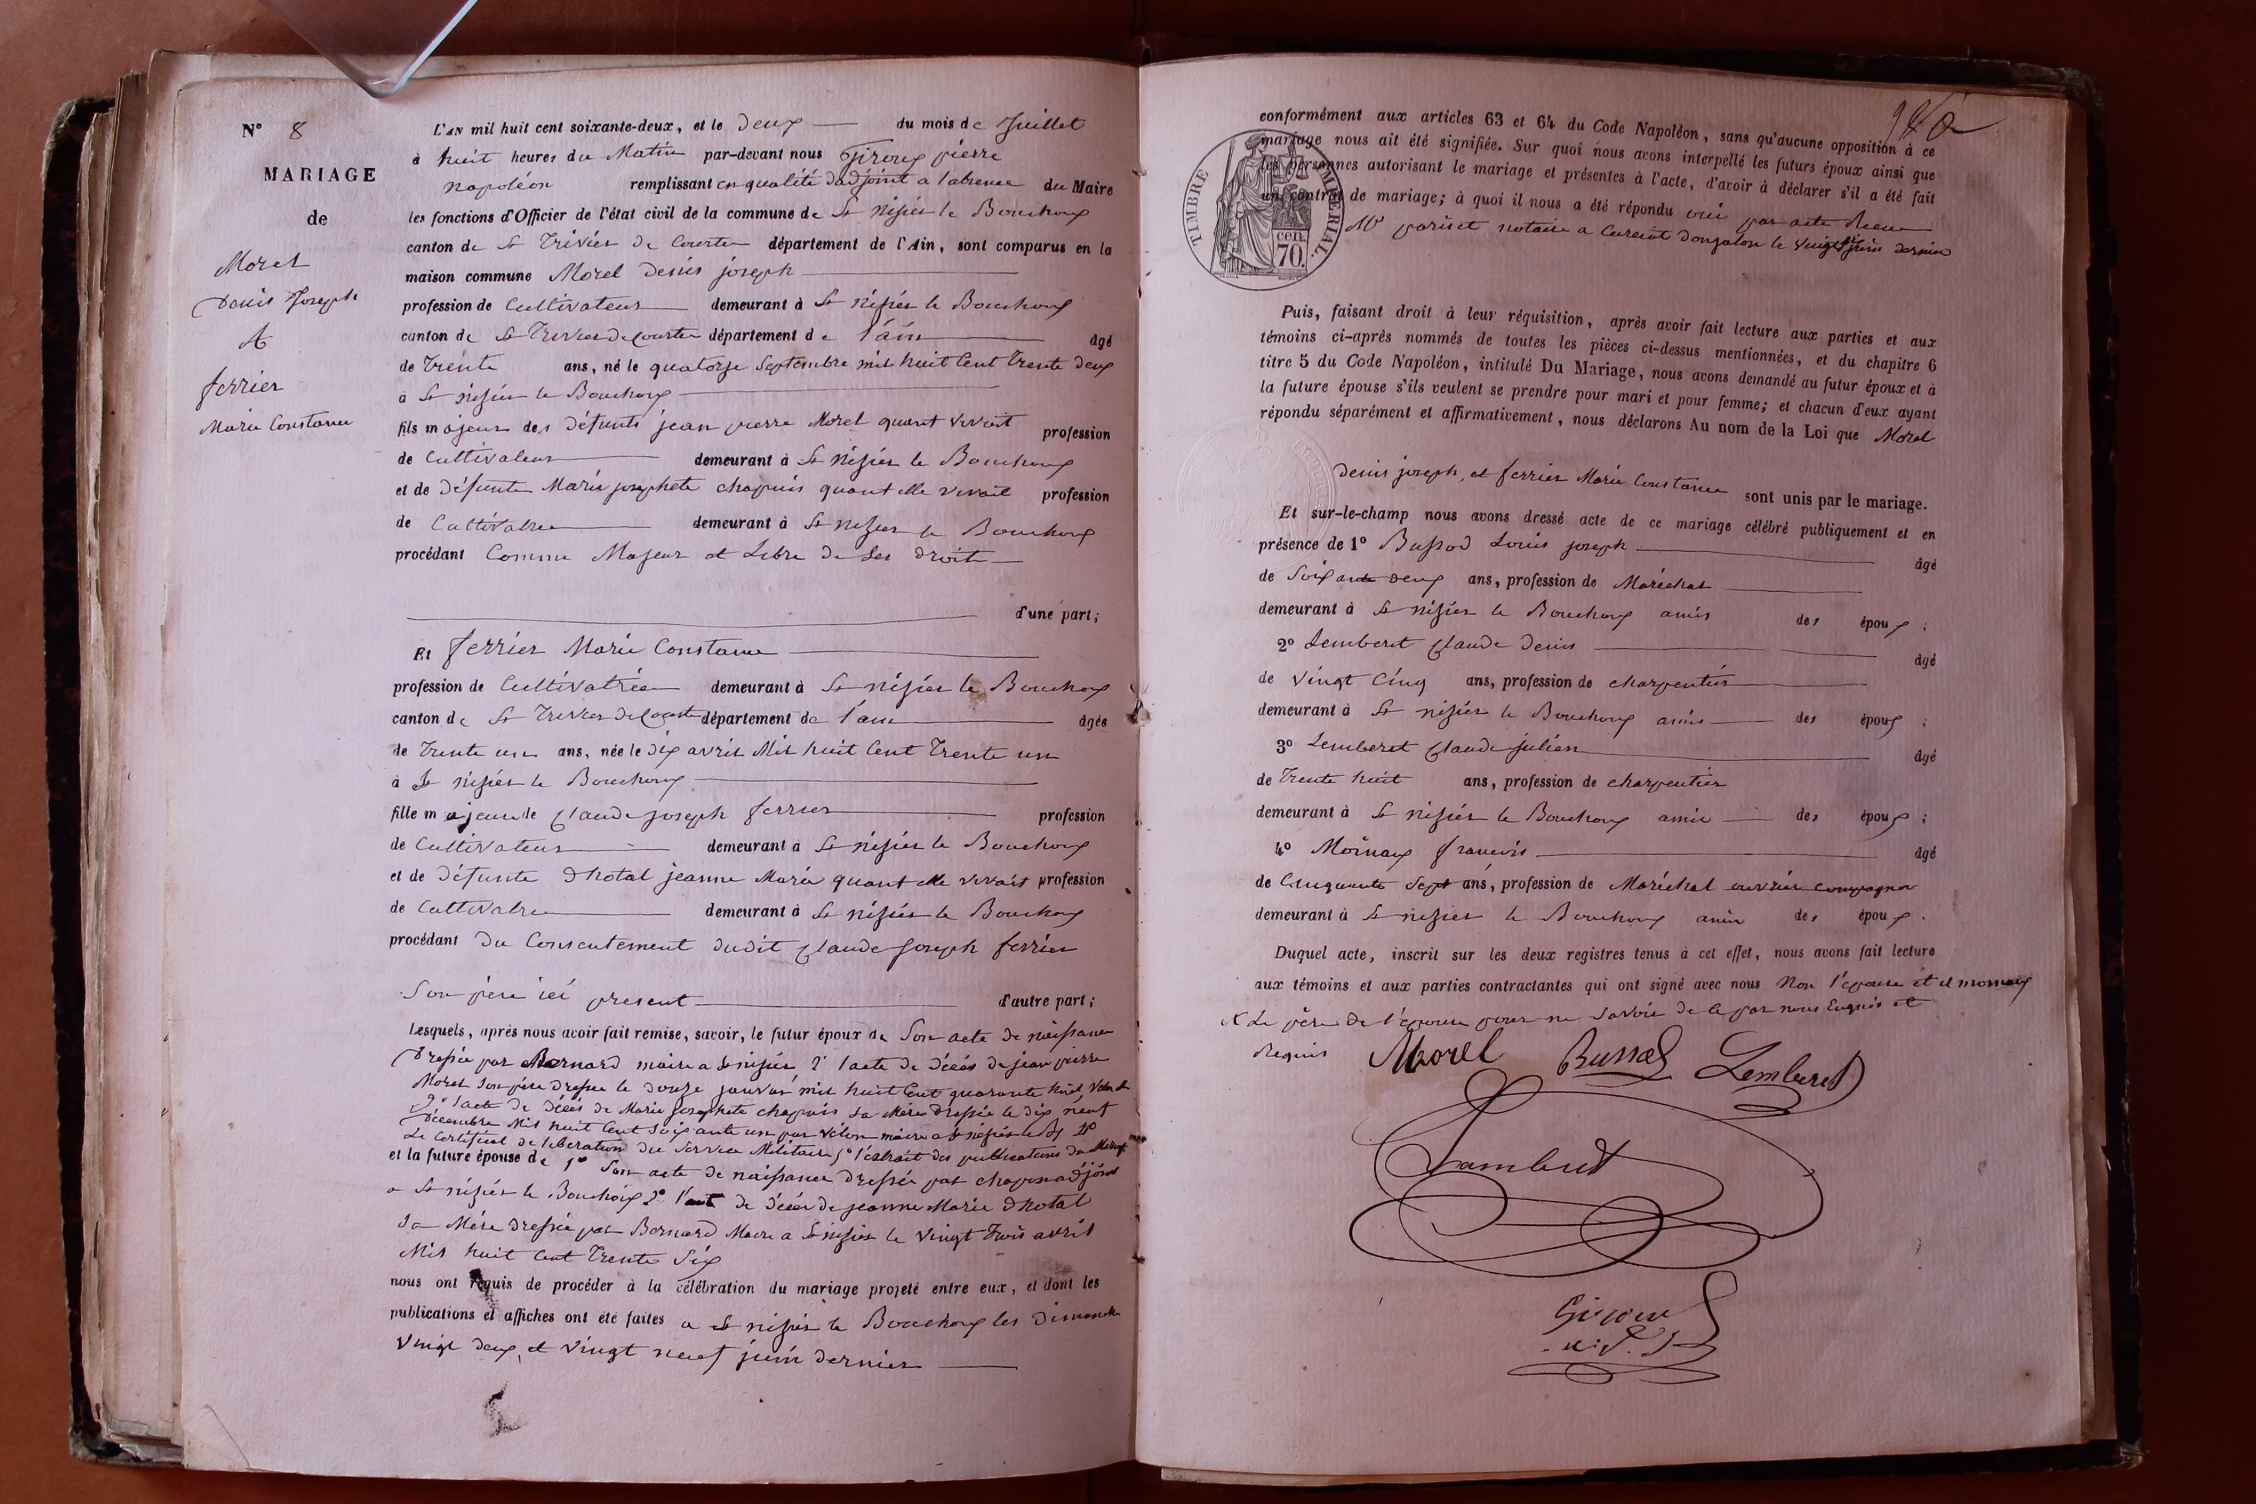 N° 8
MARIAGE
de
Morel
Denis Joseph
&
ferrier
Marie Constance
L'AN mil huit cent soixante-deux, et le deux du mois de Juillet
à huit heures du Matin par-devant nous pierre
napoléon remplissant en qualité d'adjoint a l'absence du Maire
les fonctions d'Officier de l'état civil de la commune de St nizier le Bouchoux
canton de St Trivier de Courte département de l'Ain, sont comparus en la
maison commune Morel denis joseph
profession de Cultivateur demeurant à St nizier le Bouchoux
canton de St Trivier de courte département de l'ain âgé
de trente ans, né le quatorze Septembre mil huit Cent trente deux
à St nizier le Bouchoux
fils majeur des défunts jean pierre Morel quant vivait profession
de Cultivateur demeurant à St nizier le Bouchoux
et de défunte Marie josephete chapuis quant elle vivait profession
de Cultivatrice demeurant à St nizier le Bouchoux
procédant Comme Majeur et Libre de Ses droits
d'une part;
Et ferrier Marie Constance
profession de Cultivatrice demeurant à St nizier le Bouchoux
canton de St Trivier de Courte département de l'ain âgée
de trente un ans, née le dix avril Mil huit Cent trente un
à St nizier le Bouchoux
fille majeure de Claude joseph ferrier profession
de Cultivateur demeurant à St nizier le Bouchoux
et de défunte dhotal jeanne Marie quant elle vivait profession
de Cultivatrice demeurant à St nizier le Bouchoux
procédant du Consentement dudit Claude Joseph ferrier
Son père ici present d'autre part;
Lesquels, après nous avoir fait remise, savoir, le futur époux de Son acte de naissance
dressée par Bernard maire a St nizier 2° l'acte de décés de jean pierre
Morel Son père dressee le douze janvier mil huit Cent quarante huit
3° l'acte de décés de Marie Josephete chapuis sa Mère dressée le dix neuf
décembre Mil huit Cent Soixante un par Vélon maire a St nizier le Bx 4°
Le Certificat de libération du Service Militaire 5° l'extrait des publications
et la future épouse de 1° Son acte de naissance dressée par chapon adjoint
a St nizier le Bouchoux 2° l'acte de décés de jeanne Marie dhotal
Sa Mère dressée par Bernard Maire a St nizier le vingt trois avril
Mil huit Cent Trente Six
nous ont requis de procéder à la célébration du mariage projeté entre eux, et dont les
publications et affiches ont été faites a St nizier le Bouchoux les dimanche
vingt deux, et vingt neuf juin dernier
conformément aux articles 63 et 64 du Code Napoléon, sans qu'aucune opposition à ce
mariage nous ait été signifiée. Sur quoi nous avons interpellé les futurs époux ainsi que
les personnes autorisant le mariage et présentes à l'acte, d'avoir à déclarer s'il a été fait
un contrat de mariage; à quoi il nous a été répondu oui par acte Recu
TIMBRE IMPÉRIAL.
70 cen.
Me pariset notaire a Curciat dongalon le vingt six juin dernier
Puis, faisant droit à leur réquisition, après avoir fait lecture aux parties et aux
témoins ci-après nommés de toutes les pièces ci-dessus mentionnées, et du chapitre 6
titre 5 du Code Napoléon, intitulé Du Mariage, nous avons demandé au futur époux et à
la future épouse s'ils veulent se prendre pour mari et pour femme; et chacun d'eux ayant
répondu séparément et affirmativement, nous déclarons Au nom de la Loi que Morel
denis joseph, et ferrier Marie Constance sont unis par le mariage.
Et sur-le-champ nous avons dressé acte de ce mariage célébré publiquement et en
présence de 1° Bussod Louis joseph âgé
de Soixante deux ans, profession de Maréchal
demeurant à St nizier le Bouchoux amis des époux;
2° Lemberet Claude denis âgé
de vingt Cinq ans, profession de charpentier
demeurant à St nizier le Bouchoux amis des époux;
3° Lemberet Claude julien âgé
de trente huit ans, profession de charpentier
demeurant à St nizier le Bouchoux amis des époux;
4° Moinaux francois âgé
de Cinquante Sept ans, profession de Maréchal ouvrier compagnon
demeurant à St nizier le Bouchoux amis des époux.
Duquel acte, inscrit sur les deux registres tenus à cet effet, nous avons fait lecture
aux témoins et aux parties contractantes qui ont signé avec nous Non l'épouse et
Le père de l'épouse pour ne savoir de ce par nous Enquis et
Requis
Morel Bussod Lemberet
Lamberet